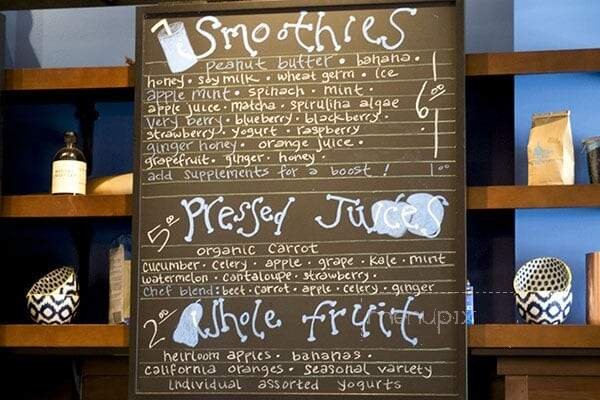 Smoothies
peanut butter • banana •
honey • soy milk • wheat germ • ice
apple mint • spinach • mint •
apple juice • matcha • spirulina algae
very berry • blueberry • blackberry •
strawberry • yogurt • raspberry
ginger honey • orange juice •
grapefruit • ginger • honey •
6.00
add supplements for a boost! 1.00
Pressed Juices
5.00
organic carrot
cucumber • celery • apple • grape • kale • mint
watermelon • cantaloupe • strawberry •
chef blend: beet • carrot • apple • celery • ginger
2.00 Whole fruit
menupix
heirloom apples • bananas •
california oranges • seasonal variety
individual assorted yogurts